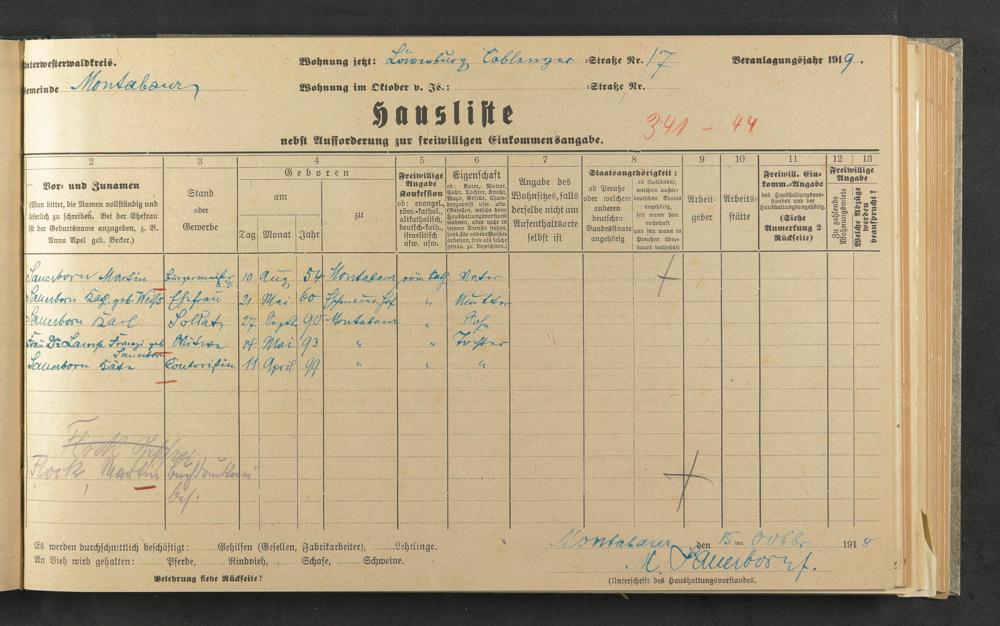 nterwesterwaldkreis.
Wohnung jetzt: Löwenburg Coblenzer Straße Nr. 17
Veranlagungsjahr 1919.
emeinde Montabaur
Wohnung im Oktober v. Js.: Straße Nr.
Hausliste
341 - 44
nebst Aufforderung zur freiwilligen Einkommensangabe.
2 3 4 5 6 7 8 9 10 11 12 13
Vor- und Zunamen
(Man bittet, die Namen vollständig und
leserlich zu schreiben. Bei der Ehefrau
ist der Geburtsname anzugeben, z. B.
Anna Apel geb. Becker.)
Stand
oder
Gewerbe
Geboren
am
zu
Tag Monat Jahr
Freiwillige
Angabe
Konfession
ob: evangel.,
röm.-kathol.,
altkatholisch,
deutsch-kath.,
israelitisch
usw. usw.
Eigenschaft
ob: Vater, Mutter,
Sohn, Tochter, Knecht,
Magd, Geselle,
Angabe des
Wohnsitzes, falls
derselbe nicht am
Aufenthaltsorte
selbst ist
Staatsangehörigkeit:
ob Preuße
oder welchem
anderen
deutschen
Bundesstaate
angehörig
ob Ausländer,
welchem außer-
deutschen Staate
angehörig,
seit wann hier
wohnhaft und
seit wann in
Preußen über-
haupt wohnhaft
Arbeit-
geber
Arbeits-
stätte
Freiwill. Ein-
komm.-Angabe
des Haushaltungsvor-
standes und der
Haushaltungsangehörig.
(Siehe
Anmerkung 2
Rückseite)
Freiwillige
Angabe
Zu zahlende
Wohnungsmiete
Welche Abzüge
werden
beansprucht?
Sauerborn Martin Bürgermeister 10 Aug 54 Montabaur röm. kath Vater
Sauerborn Kath. geb. Weiß Ehefrau 21 Mai 60 " Mutter
Sauerborn Karl Soldat 27 Septb 90 Montabaur " Sohn
Frau Dr. Lamp geb. Witwe 14 Mai 93 " " Tochter
Sauerborn
Sauerborn Käte Contoristin 11 April 99 " " "
Flock
Flock, Martin Buchdruckerei
bes.
Es werden durchschnittlich beschäftigt: Gehilfen (Gesellen, Fabrikarbeiter), Lehrlinge.
An Vieh wird gehalten: Pferde, Rindvieh, Schafe, Schweine.
Belehrung siehe Rückseite!
Montabaur, den 15ten Octbr 1918
M. Sauerborn
(Unterschrift des Haushaltungsvorstandes.